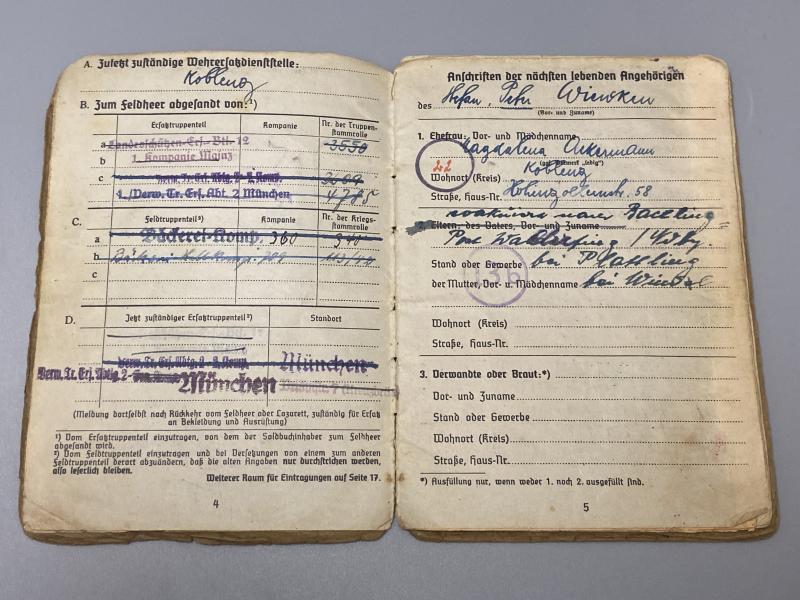 A. Zuletzt zuständige Wehrersatzdienststelle:
Koblenz
B. Zum Feldheer abgesandt von:¹)
Ersatztruppenteil Kompanie Nr. der Truppenstammrolle
a Landesschützen-Ers.-Btl. 12 3550
b 1. Kompanie Mainz
c Verw. Tr. Ers. Abtg. 2 - 2. Komp.
1./Verw. Tr. Ers. Abt. 2 München 4785
C. Feldtruppenteil²) Kompanie Nr. der Kriegsstammrolle
a Bäckerei-Komp. 360 340
b
c
D. Jetzt zuständiger Ersatztruppenteil²) Standort
Verw. Tr. Ers. Abtg. 2 - 2. Komp. München
Verw. Tr. Ers. Abtg. 2 - München
(Meldung dortselbst nach Rückkehr vom Feldheer oder Lazarett, zuständig für Ersatz
an Bekleidung und Ausrüstung)
¹) Vom Ersatztruppenteil einzutragen, von dem der Soldbuchinhaber zum Feldheer
abgesandt wird.
²) Vom Feldtruppenteil einzutragen und bei Versetzungen von einem zum anderen
Feldtruppenteil derart abzuändern, daß die alten Angaben nur durchstrichen werden,
also leserlich bleiben.
Weiterer Raum für Eintragungen auf Seite 17.
4
Anschriften der nächsten lebenden Angehörigen
des Stefan, Peter Wiewken
(Vor- und Zuname)
1. Ehefrau: Vor- und Mädchenname
Magdalena Ackermann
(ggf. Vermerk „ledig“)
22
Wohnort (Kreis) Koblenz
Straße, Haus-Nr. Hohenzollernstr. 58
2. Eltern, des Vaters, Vor- und Zuname
Post
Stand oder Gewerbe bei Plattling
136
der Mutter, Vor- u. Mädchenname bei
Wohnort (Kreis)
Straße, Haus-Nr.
3. Verwandte oder Braut:*)
Vor- und Zuname
Stand oder Gewerbe
Wohnort (Kreis)
Straße, Haus-Nr.
*) Ausfüllung nur, wenn weder 1. noch 2. ausgefüllt sind.
5